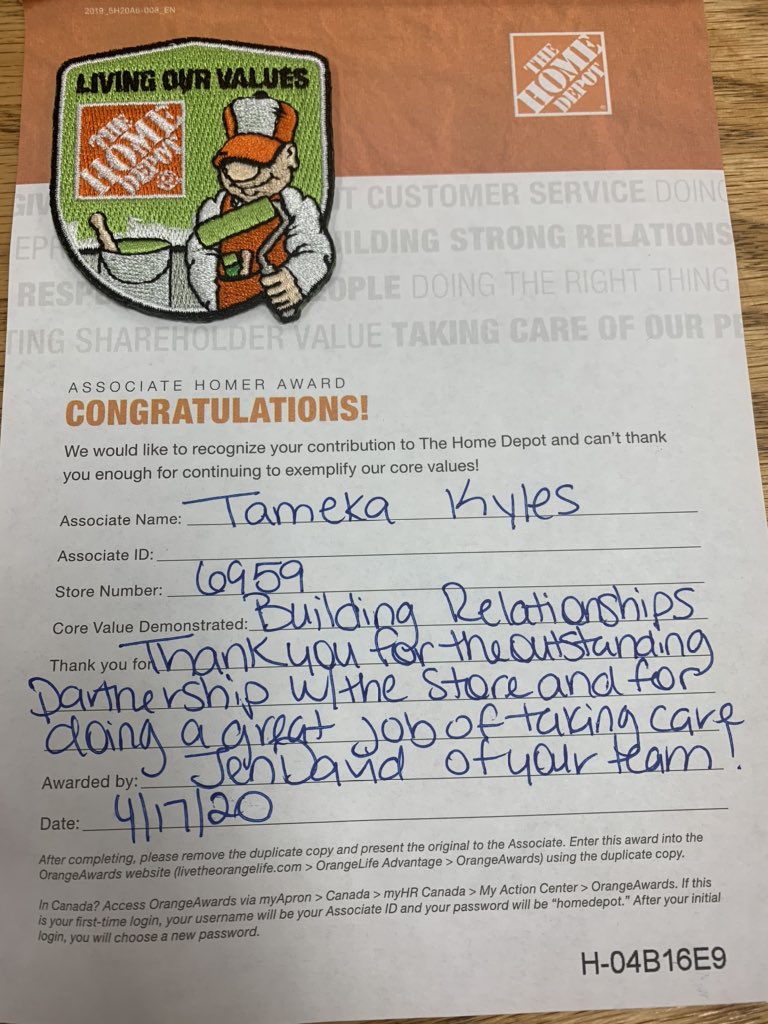 2019_5H20A6-008_EN
LIVING OUR VALUES
THE
HOME
DEPOT
THE
HOME
DEPOT
CUSTOMER SERVICE DOING
BUILDING STRONG RELATIONS
RESPE OPLE DOING THE RIGHT THING
TING SHAREHOLDER VALUE TAKING CARE OF OUR PE
ASSOCIATE HOMER AWARD
CONGRATULATIONS!
We would like to recognize your contribution to The Home Depot and can't thank
you enough for continuing to exemplify our core values!
Associate Name: Tameka Kyles
Associate ID:
Store Number: 6959
Core Value Demonstrated: Building Relationships
Thank you for Thank you for the outstanding
partnership w/the Store and for
doing a great job of taking care
of your team!
Awarded by: Jen David
Date: 4/17/20
After completing, please remove the duplicate copy and present the original to the Associate. Enter this award into the
OrangeAwards website (livetheorangelife.com > OrangeLife Advantage > OrangeAwards) using the duplicate copy.
In Canada? Access OrangeAwards via myApron > Canada > myHR Canada > My Action Center > OrangeAwards. If this
is your first-time login, your username will be your Associate ID and your password will be "homedepot." After your initial
login, you will choose a new password.
H-04B16E9